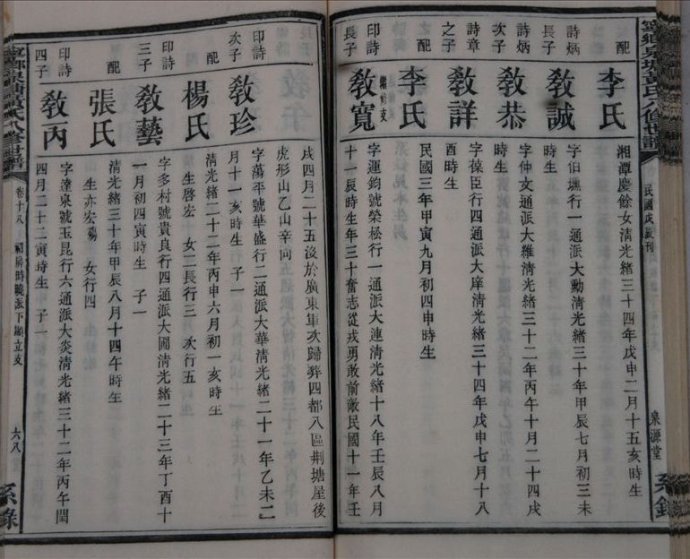 寧鄉泉塘黃氏八修世譜
民國戊辰刊
泉源堂
系錄
配
李氏
湘潭慶餘女清光緒三十四年戊申二月十五亥時生
詩炳
長子
敎誠
字伯壎行一通派大勳清光緒三十年甲辰七月初三未時生
詩炳
次子
敎恭
字仲文通派大維清光緒三十二年丙午十月二十四戌時生
詩章
之子
敎詳
字葆臣行四通派大庠清光緒三十四年戊申七月十八酉時生
配
李氏
民國三年甲寅九月初四申時生
印詩
長子
敎寬
字運鈞號榮松行一通派大連清光緒十八年壬辰八月十一辰時生年三十奮志從戎勇敢前敵民國十一年壬
戌四月二十五沒於廣東軍次歸葬四都八區荆塘屋後虎形山乙山辛向
印詩
次子
敎珍
字萬平號華盛行二通派大華清光緒二十一年乙未二月十一亥時生 子一
配
楊氏
清光緒二十二年丙申六月初一亥時生
生啓宏 女二長行三 次行五
印詩
三子
敎藝
字多村號貴良行四通派大圃清光緒二十三年丁酉十一月初四寅時生 子一
配
張氏
清光緒三十年甲辰八月十四午時生
生亦宏 女行四
印詩
四子
敎丙
字達泉號玉昆行六通派大炎清光緒三十二年丙午閏四月二十二寅時生 子一
寧鄉泉塘黃氏八修世譜
卷十八
時曉派下顯立支
六八
系錄